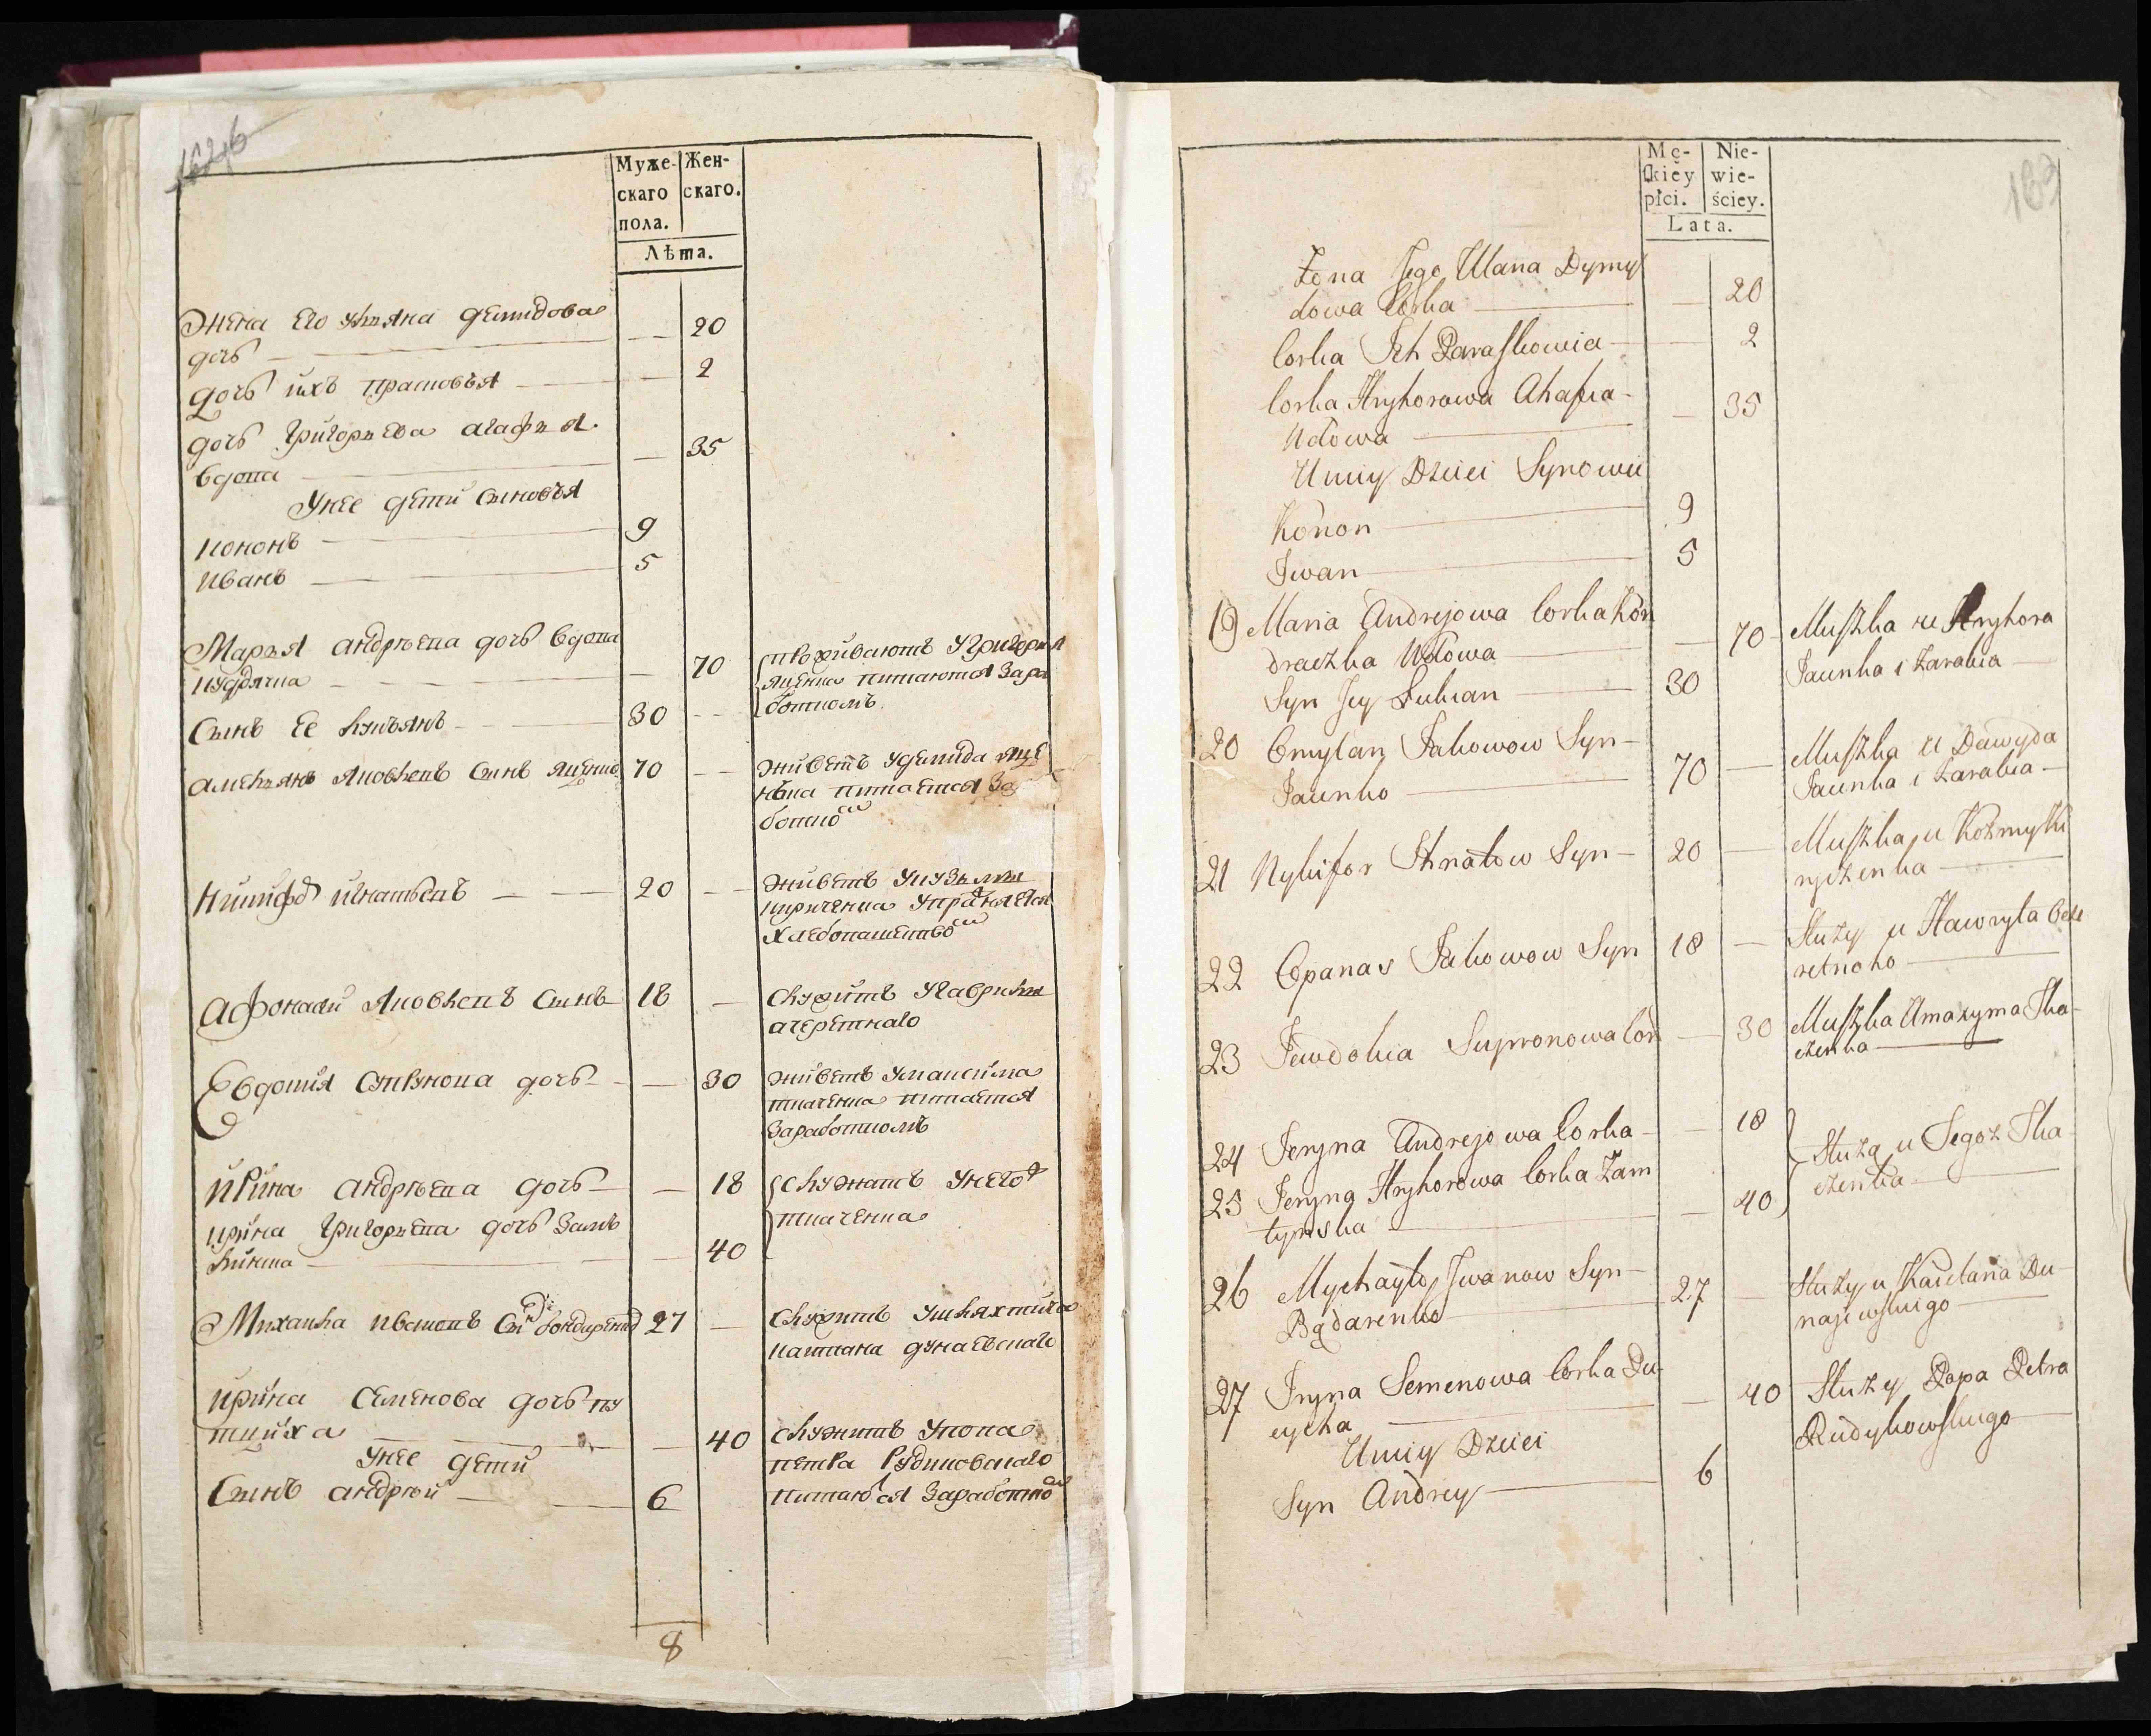 Муже-
скаго
пола.
Жен-
скаго.
Лѣта.
Жена Его ульяна демидова
дочь — — 20
дочь ихъ — 2
дочь григорьева агафья
вдова — — 35
Унее дети сыновья
кононъ — 9
иванъ — 5
Марья андрѣева дочь вдова
— 70
проживаютъ Угригорья
яценка питаются Зара
боткомъ
Сынъ Ее лукьянъ — 30
амельянъ яковлевъ Сынъ яценко 70 —
живетъ Удемида яце
нька питается За
ботко
никифоръ игнатьевъ — 20 —
живетъ Укузьмы
кириченка Упражняется
хлебопашество
афонасий яковлевъ Сынъ 18 —
служитъ Угаврилы
ачеретнаго
Евдокия дочь — 30
живетъ Умаксима
ткаченка питается
Заработкомъ
ирина андрѣева дочь — 18
служатъ Унегож
ткаченка
ирина григорьева дочь Замъ
— 40
Михаила ивановъ Сынъ бондаренко 27 —
служитъ Ушляхтича
каштана дунаевскаго
ирина Семенова дочь ку
цыиха — — 40
служитъ Упопа
петра Рудиковскаго
Унее дети
Сынъ андрѣй — 6
питаются Заработко
8
Mę-
ſkiey
płci.
Nie-
wie-
ściey.
Lata.
163
Żona Jego Ulana Dymy
dowa Corka — 20
Corka Ich Paraſkowia — 2
Corka Hryhorowa Ahafia —
Wdowa — 35
Uniiy Dzieci Synowie
Konon — 9
Iwan — 5
19 Maria Andrejowa Corka Kon
draczka Wdowa — 70
Mięſzka u Hryhora
Jacenka i Zarabia
Syn Jey Lukian — 30
20 Omylan Jakowow Syn —
Jacenko — 70 —
Mięſzka u Dawyda
Jacenka i Zarabia —
21 Nykifor Ihnatow Syn — 20 —
Mięſzka u Kozmy Ki
ryczenka —
22 Opanas Jakowow Syn 18 —
Służy u HawryłaOcze
retnoho —
23 Jewdokia Supronowa Cor — 30
Mięſzka Umaxyma Tka-
czenka —
24 Jeryna Andrejowa Corka — 18
25 Jeryna Hryhorowa Corka Zam
— 40
Służą u Tegoż Tka-
czenka —
26 Mychayło Jwanow Syn —
Bądarenko — 27
Służy u Kasztana Du-
najewſkiego —
27 Iryna Semenowa Corka Ku-
cycha — 40
Służy Popa Petra
Rudykowſkiego
Uniiy Dzieci
Syn Andrey — 6